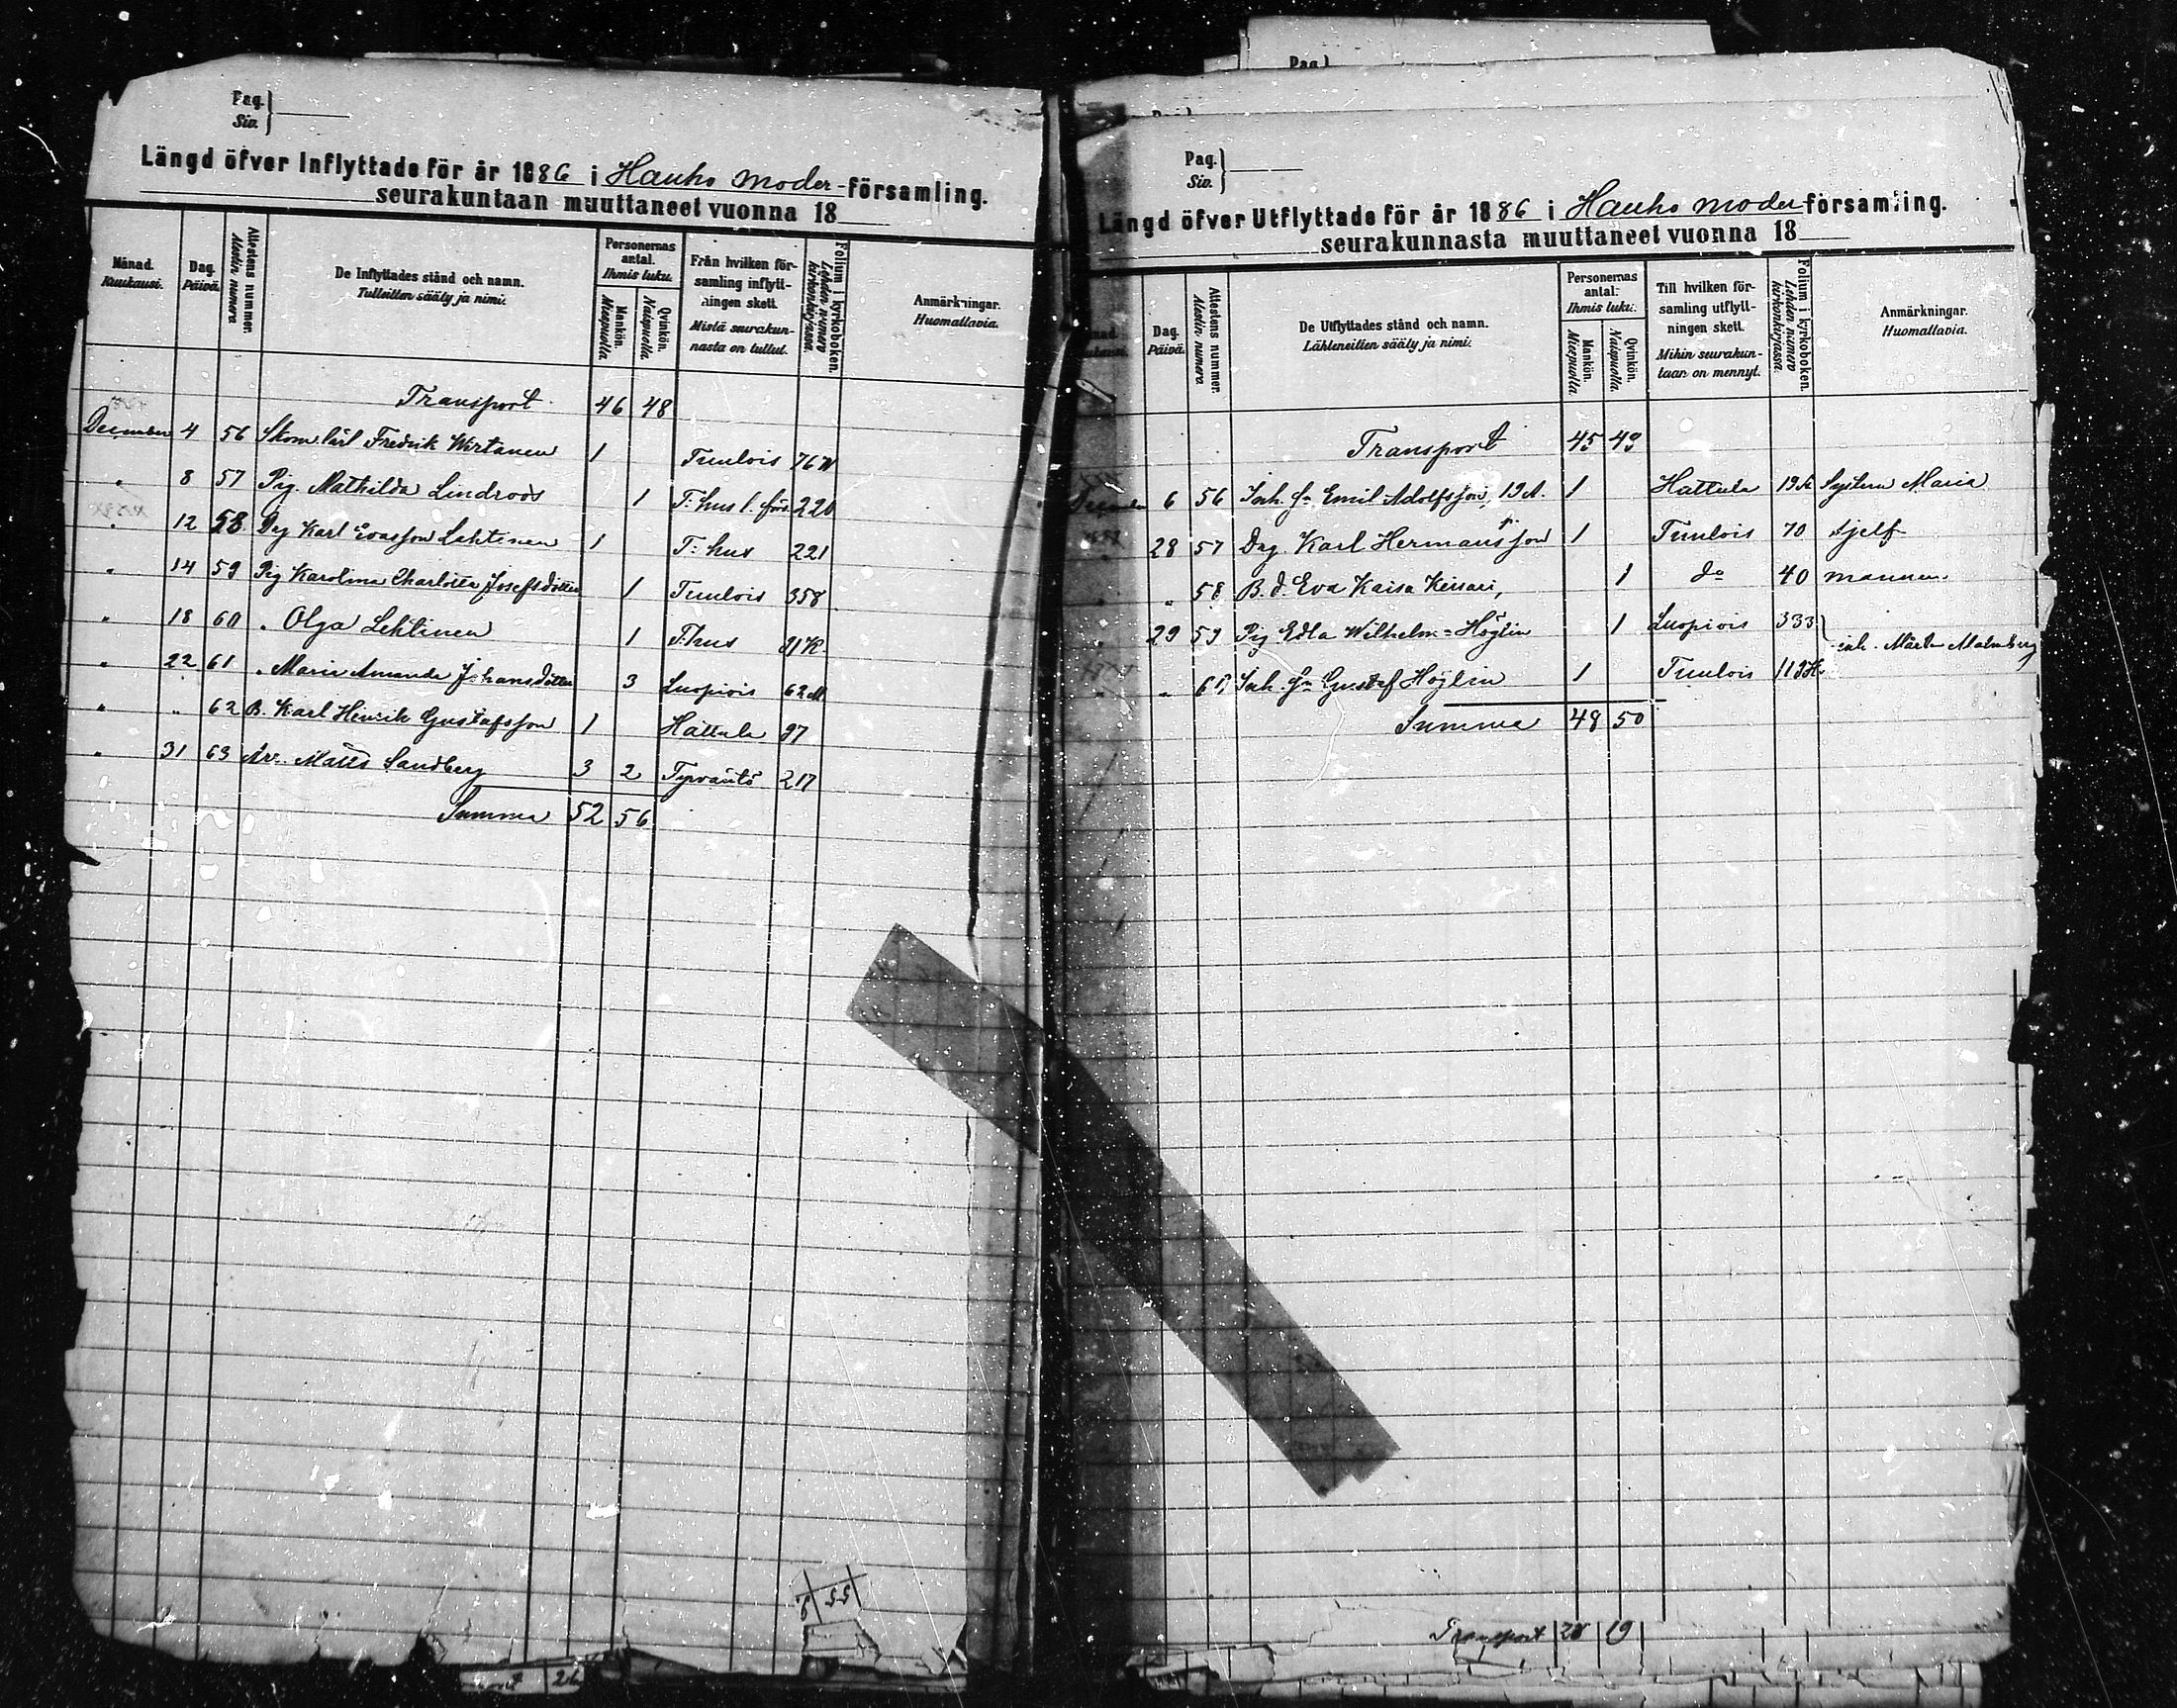 Pag.
Siv.
Längd öfver Inflyttade för år 1886 i Hauho moder-församling.
seurakuntaan muuttaneet vuonna 18
Månad. Kuukausi.
Dag. Päivä.
Attestens nummer. Alestin numero
De Inflyttades stånd och namn.
Tulleitten sääty ja nimi.
Personernas antal. Ihmis luku.
Mankön. Miespuolta
Qvinkön. Naispuolta
Från hvilken församling inflyttningen skett.
Mistä seurakunnasta on tullut.
Folium i kyrkoboken. Lehden numero kirkonkirjassa.
Anmärkningar.
Huomattavia.
Transport 46 48
December 4 56 Skom lärl Fredrik Wirtanen 1 Tuulois 76
" 8 57 Pig. Mathilda Lindroos 1 T. hus l. förs. 220
" 12 58 Drg Karl Evasson Lehtinen 1 T: hus 221
" 14 59 Pig Karolina Charlotta Josefsdotter 1 Tuulois 358
" 18 60 " Olga Lehtinen 1 T.hus 91 K.
" 22 61 " Maria Amanda Johansdotter 3 Luopiois 62
" " 62 B. Karl Henrik Gustafsson 1 Hattula 97
" 31 63 Arb. Matts Sandberg 3 2 Tyrväntö 217
Summa 52 56
Pag.
Siv.
Längd öfver Utflyttade för år 1886 i Hauho moder församling.
seurakunnasta muuttaneet vuonna 18
Dag. Päivä.
Attestens nummer. Alestin numero
De Utflyttades stånd och namn.
Lähteneitten sääty ja nimi.
Personernas antal. Ihmis luku.
Mankön. Miespuolta
Qvinkön. Naispuolta
Till hvilken församling utflyttningen skett.
Mihin seurakuntaan on mennyt.
Folium i kyrkoboken. Lehden numero kirkonkirjassa.
Anmärkningar.
Huomattavia.
Transport 45 49
December 6 56 Inh. sn Emil Adolfsson, 19 A. 1 Hattula 19 Systern Maria
" 28 57 Drg. Karl Hermansson 1 Tuulois 70 sjelf
" " 58 B. d. Eva Kaisa 1 do 40 mannen
" 29 59 Pig Edla Wilhelm. Höglin 1 Luopiois 333
inh. Mårten Malmberg
" " 60 Inh. sn Gustaf Höglin 1 Tuulois 119
Summa 48 50
55
Transport 28 19
26
Pag.